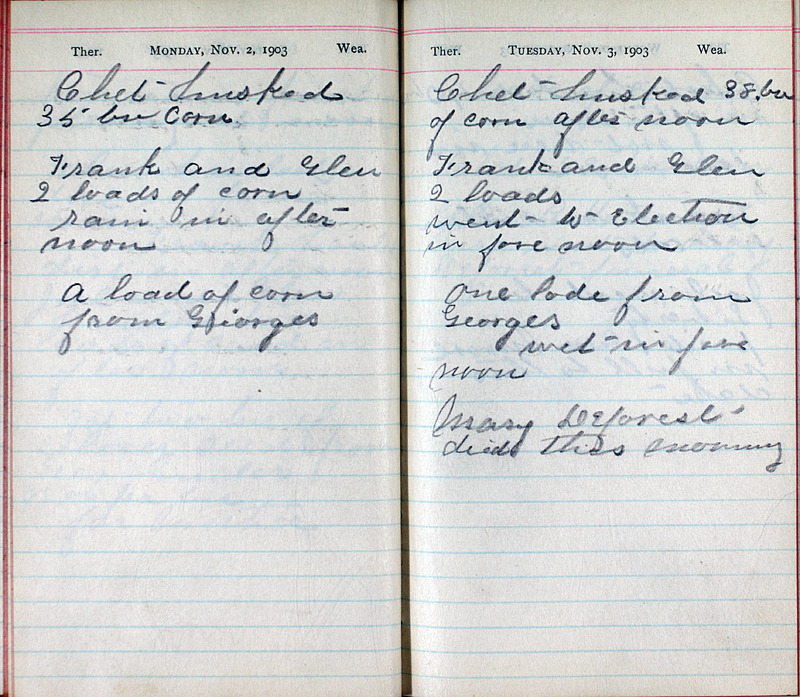 Ther. MONDAY, NOV. 2, 1903 Wea.
Chet husked
35 bu Corn
Frank and Glen
2 loads of corn
rain in after
noon
A load of corn
from Georges
Ther. TUESDAY, NOV. 3, 1903 Wea.
Chet husked 38 bu
of corn after noon
Frank and Glen
2 loads
went to Election
in fore noon
one lode from
Georges
wet in fore
noon
Mary Deforest
died this morning